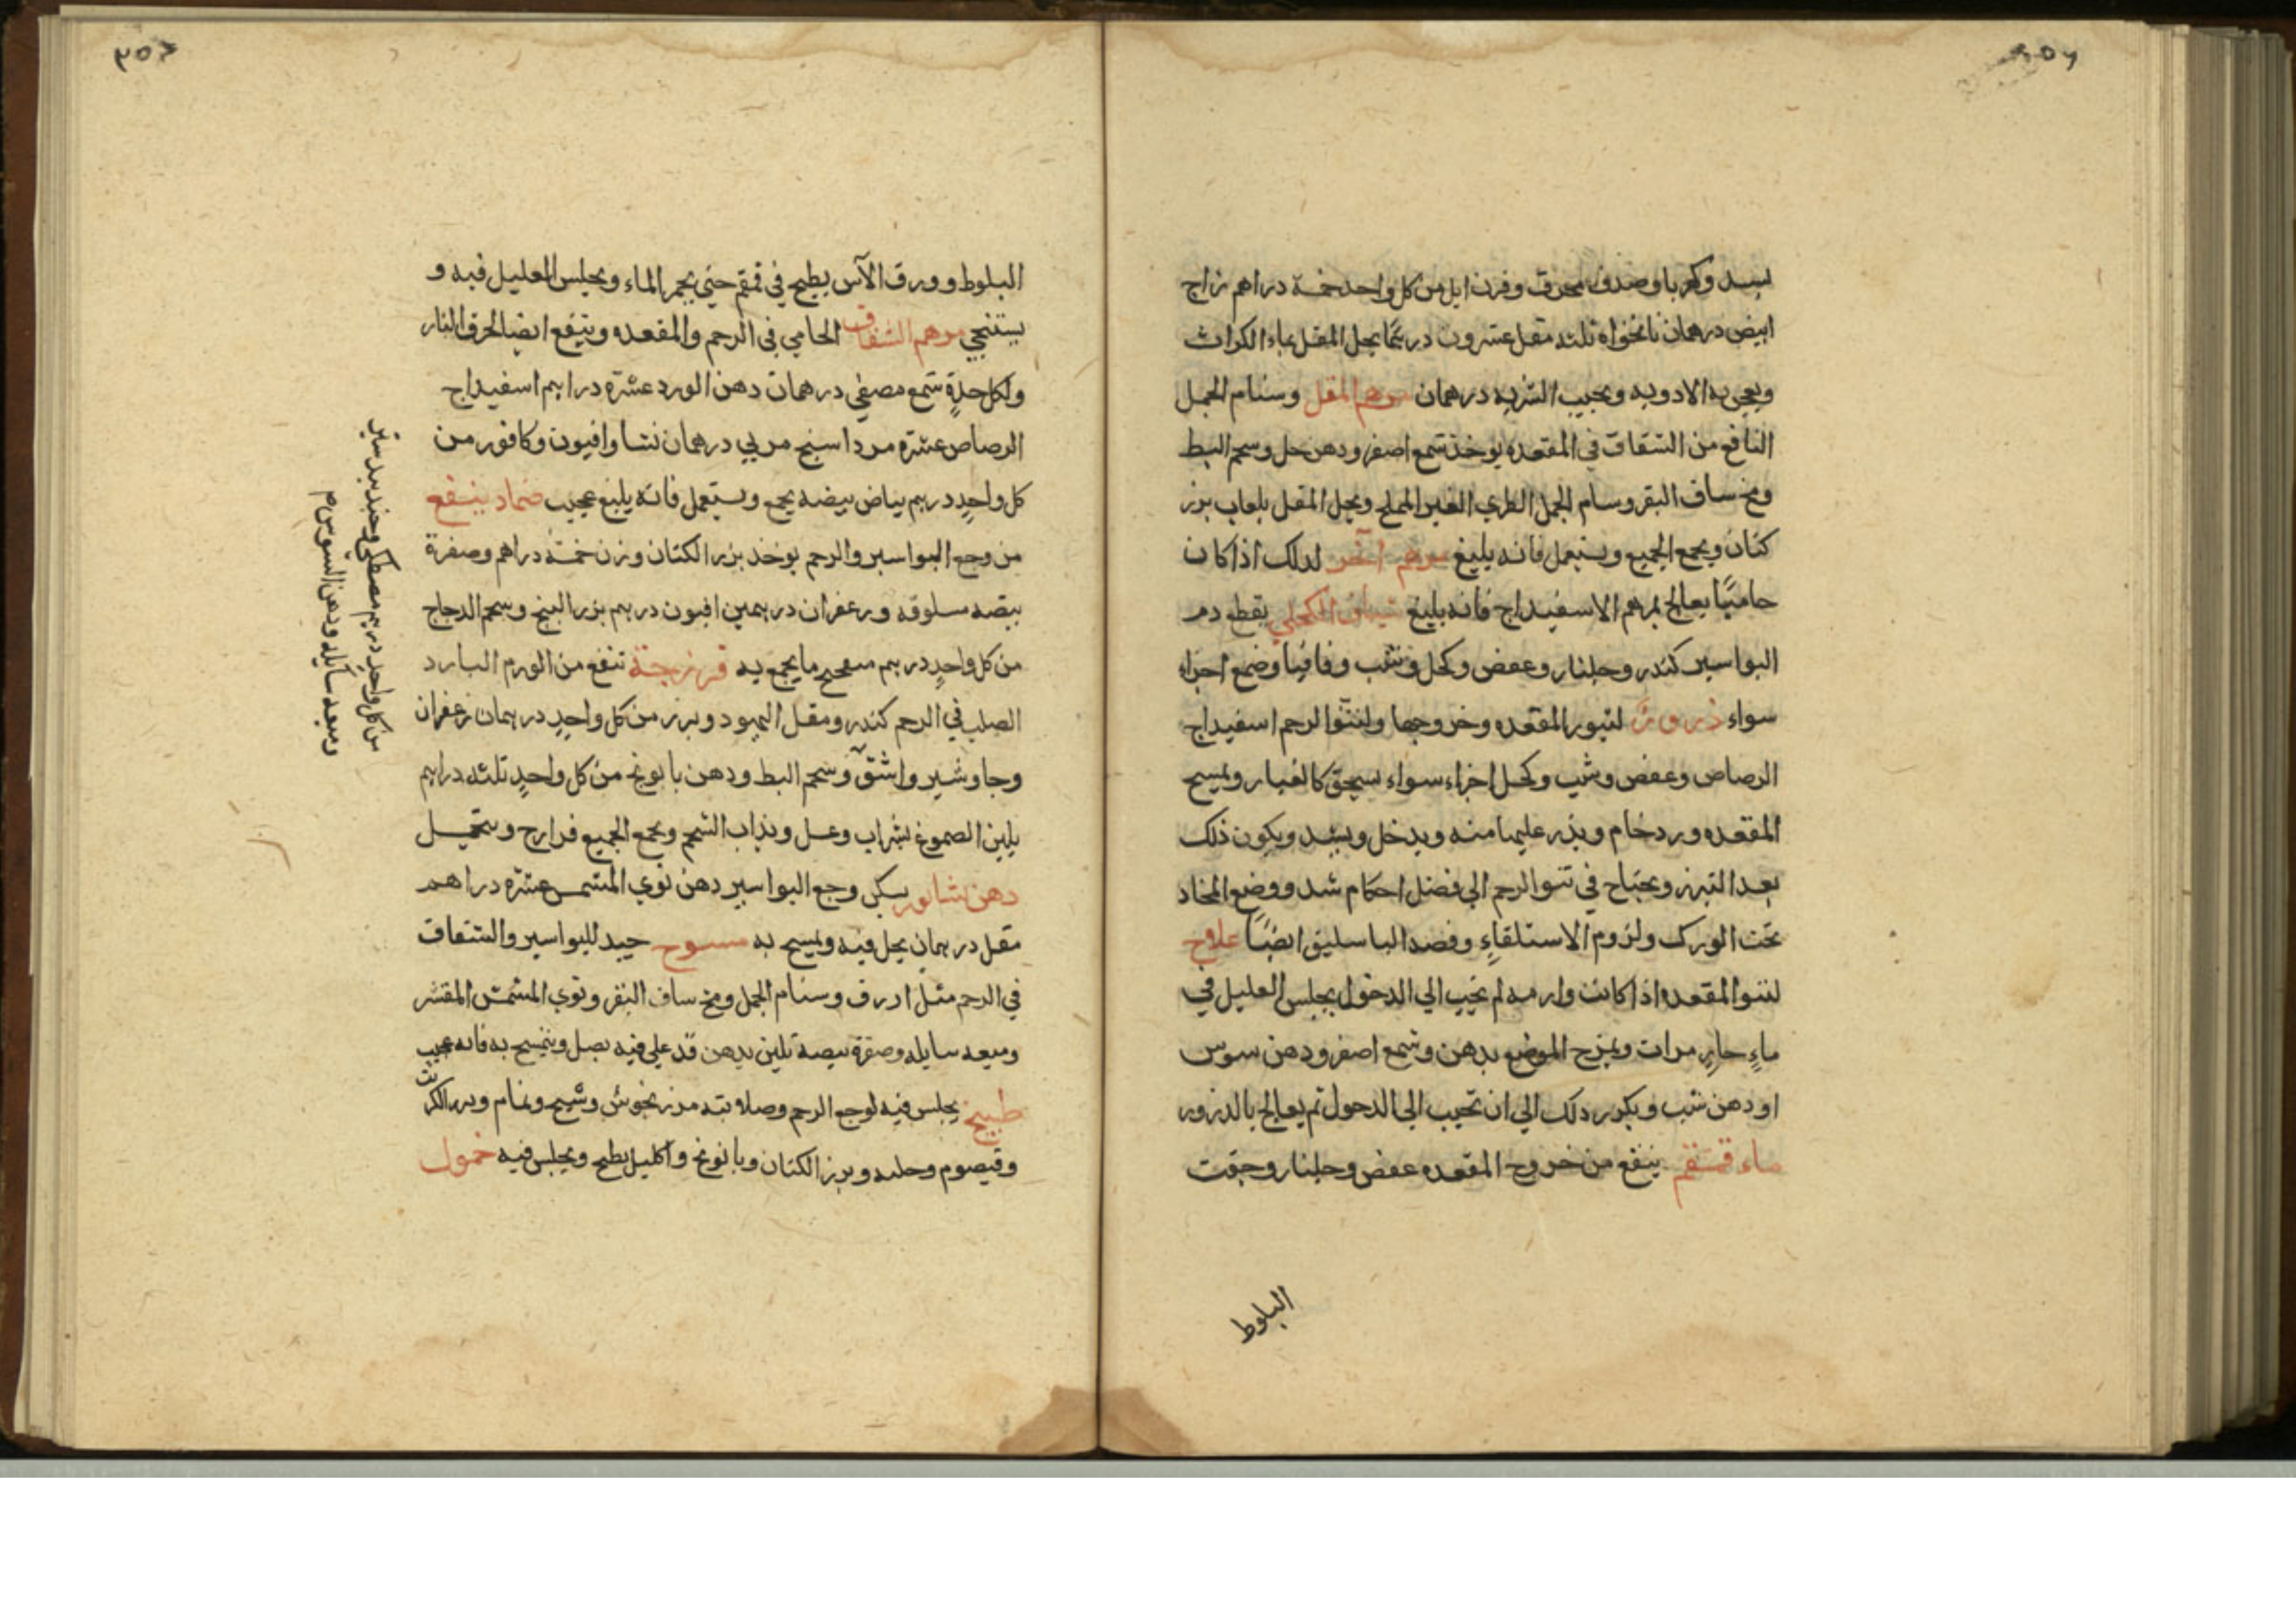 بسد وكهربا وصدف محرق وقرن ايل من كل واحد خمسة دراهم زاج
ابيض درهمان نانخواه ثلثه مقل عشرون درهمًا يحل المقل بماء الكراث
ويعجن به الادويه ويحبب الشربه درهمان مرهم المقل وسنام الجمل
النافع من الشقاق في المقعده يوخذ شمع اصفر ودهن حل وشحم البط
ومخ ساق البقر وسنام الجمل الطري الغير المملح ويحل المقل بلعاب بزر
كتان ويجمع الجميع ويستعمل فانه بليغ مرهم آخر لذلك اذا كان
حاميًا يعالج بمرهم الاسفيداج فانه بليغ شياف الكحلي يقطع دم
البواسير كندر وجلنار وعفص وكحل وشب وقاقيا وصمغ اجزاء
سواء ذرورٌ لنبور المقعده وخروجها ولنتوّ الرحم اسفيداج
الرصاص وعفص وشب وكحل اجزاء سواء يسحق كالغبار ويمسح
المقعده وردخام ويذر عليها منه ويدخل ويشد ويكون ذلك
بعد التبرز ويحتاج في نتو الرحم الي فضل احكام شد ووضع المخاد
تحت الورك ولزوم الاستلقاءِ وفصد الباسليق ايضًا علاج
لنتو المقعده اذا كانت وارمه لم تجب الي الدخول يجلس العليل في
ماءٍ حارٍ مرات ويمرخ الموضع بدهن وشمع اصفر ودهن سوس
او دهن شب ويكرر ذلك الي ان تجيب الي الدخول ثم يعالج بالذرور
ماء قمقم ينفع من خروج المقعده عفص وجلنار وجفت
البلوط
٣٥٧
البلوط وورق الآس يطبخ في قمقم حتي يحمر الماء ويجلس العليل فيه و
يستنجي مرهم الشقاق الحامي في الرحم والمقعده وينفع ايضا لحرق النار
ولكل حدةٍ شمع مصفي درهمان دهن الورد عشرة دراهم اسفيداج
الرصاص عشرة مرداسنج مربي درهمان نشا وافيون وكافور من
كل واحدٍ درهم بياض بيضه يجمع ويستعمل فانه بليغ عجيب ضماد ينفع
من وجع البواسير والرحم يوخذ بزر الكتان وزن خمسة دراهم وصفرة
بيضه مسلوقه وزعفران درهمين افيون درهم بزر البنج وشحم الدجاج
من كل واحدٍ درهم ميفختج ما يجمع به فرزجة تنفع من الورم البارد
الصلب في الرحم كندر ومقل اليهود وبزر من كل واحدٍ درهمان زعفران
وجاوشير واشق وشحم البط ودهن بابونج من كل واحدٍ ثلثه دراهم
يلين الصموغ بشراب وعسل ويذاب الشحم ويجمع الجميع فرازج ويتحمل
دهن نشابور يسكن وجع البواسير دهن نوي المشمس عشرة دراهم
مقل درهمان يحل فيه ويمسح به مسوح جيد للبواسير والشقاق
في الرحم مثل ازرق وسنام الجمل ومخ ساق البقر ونوي المشمش المقشر
وميعه سايله وصفرة بيضه تلين بدهن قد غلي فيه بصل ويتمسح به فانه عجيب
طبيخ يجلس فيه لوجع الرحم وصلابته مرزنجوش وشيح ونمام وبزر الكراث
وقيصوم وحلبه وبزر الكتان وبابونج واكليل يطبخ ويجلس فيه حمول
من كل واحدٍ درهم مصطكي وجندبيدستر
وميعه سايله ودهن السوس م